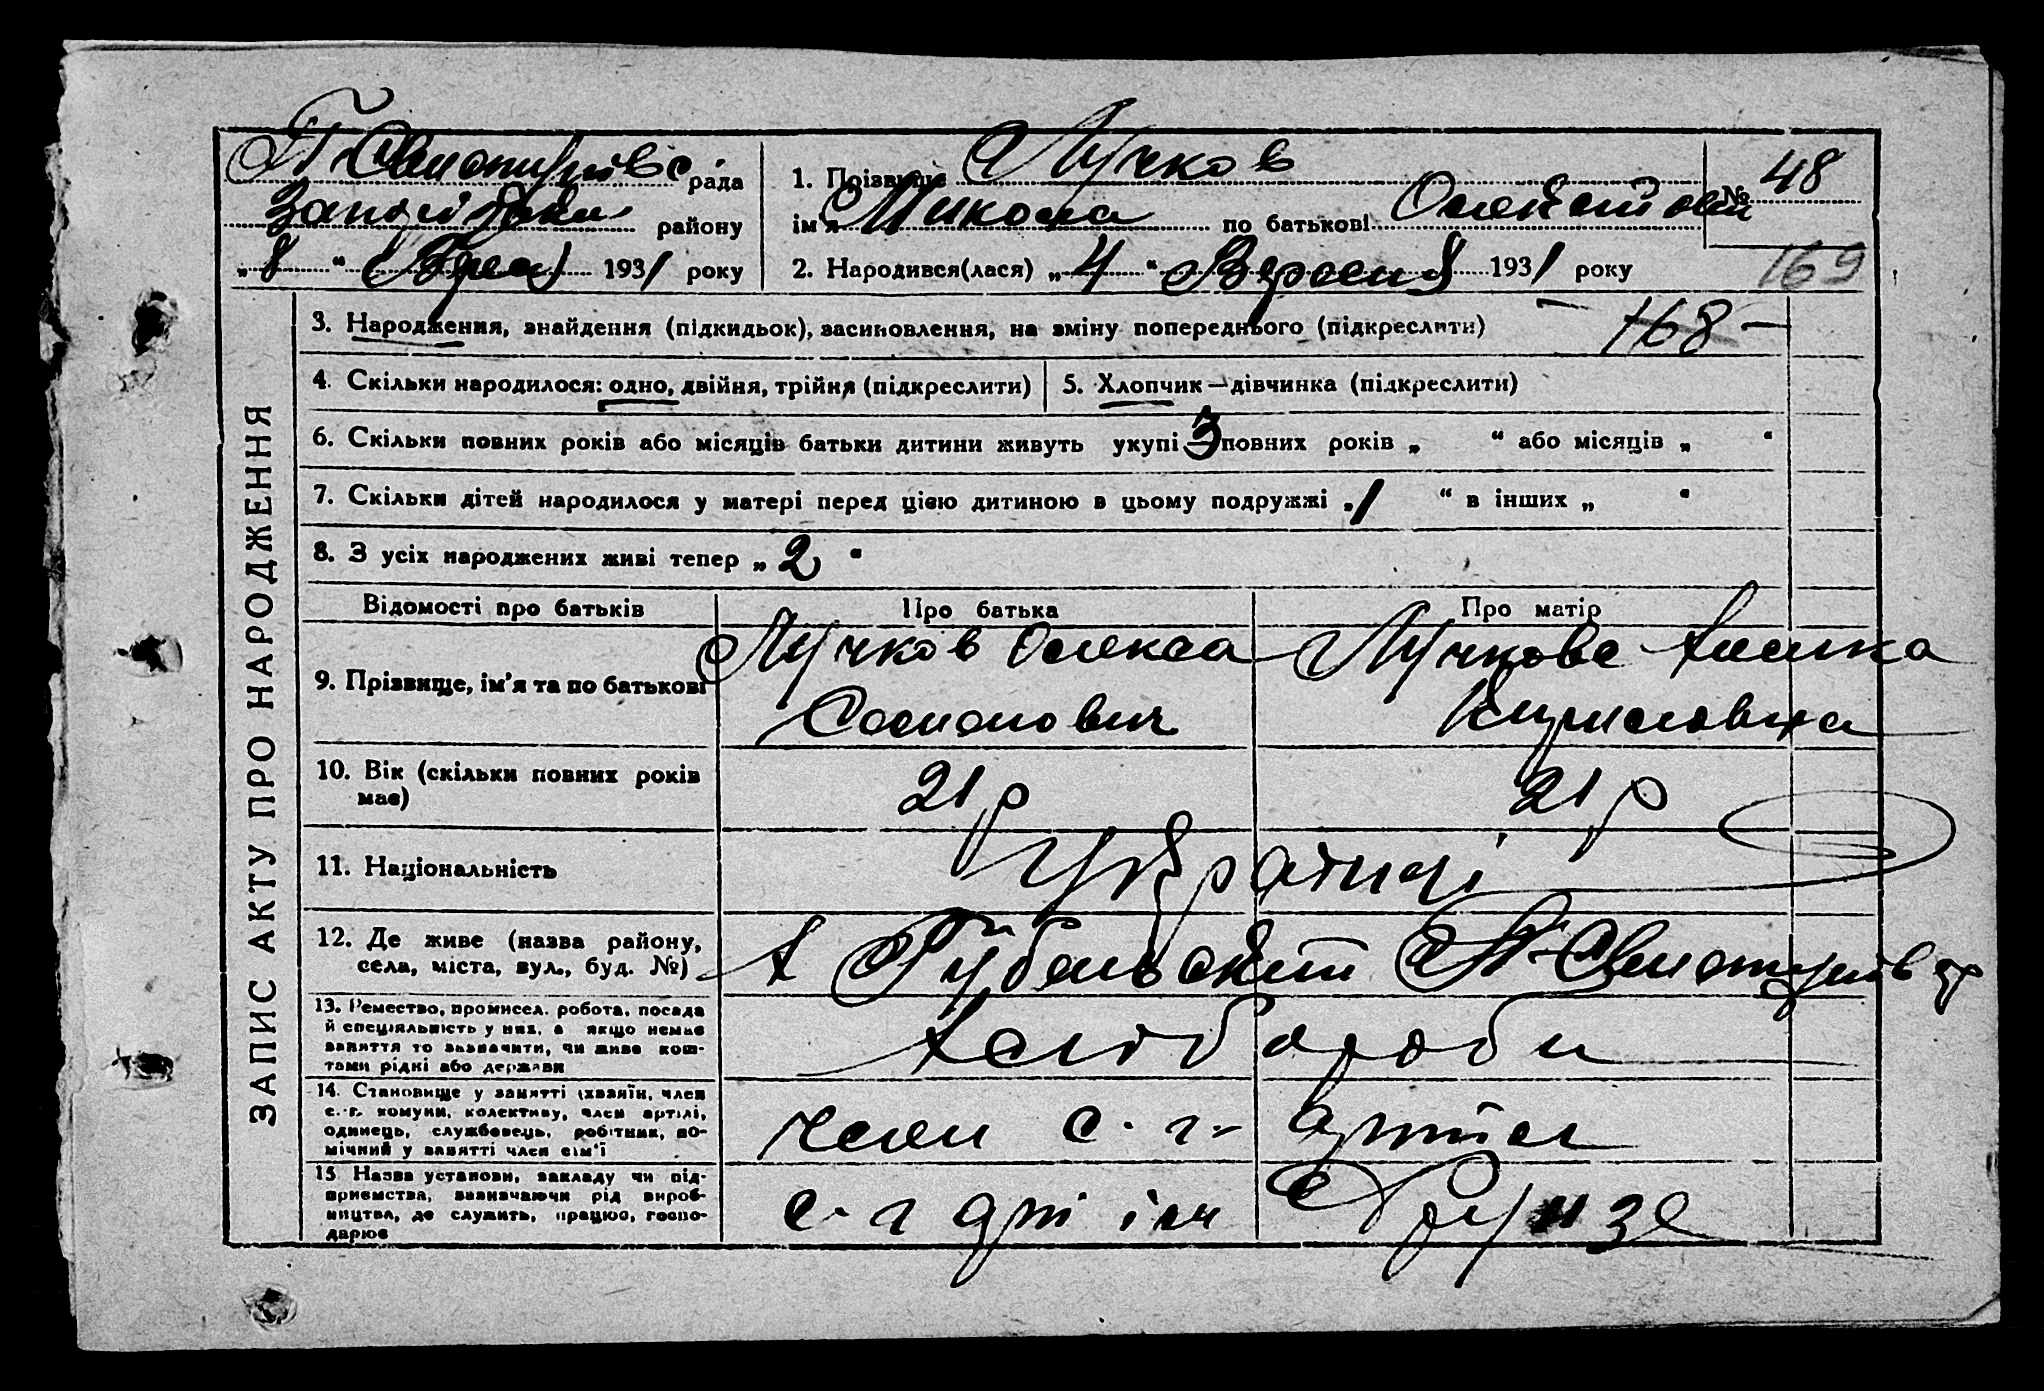 рада
району
„ 8 “ Верес 1931 року
1. Прізвище Лучков
ім'я Микола по батькові
№ 48
2. Народився(лася) „ 4 “ Вересня 1931 року
169
3. Народження, знайдення (підкидьок), засиновлення, на зміну попереднього (підкреслити)
168
4. Скільки народилося: одно, двійня, трійня (підкреслити)
5. Хлопчик — дівчинка (підкреслити)
6. Скільки повних років або місяців батьки дитини живуть укупі 3 повних років „ “ або місяців „ “
7. Скільки дітей народилося у матері перед цією дитиною в цьому подружжі „ 1 “ в інших „ “
8. З усіх народжених живі тепер „ 2 “
ЗАПИС АКТУ ПРО НАРОДЖЕННЯ
Відомості про батьків
Про батька
Про матір
9. Прізвище, ім'я та по батькові
Лучков Олекса
Лучкова
Кириловна
10. Вік (скільки повних років
має)
21 р
21 р
11. Національність
Українці
12. Де живе (назва району,
села, міста, вул., буд. №)
13. Ремество, промисел, робота, посада
й спеціяльність у них, а якщо немає
заняття то зазначити, чи живе кош-
тами рідні або держави
Хлібороби
14. Становище у занятті (хазяїн, член
с.-г. комуни, колективу, член артілі,
одинець, службовець, робітник, по-
мічний у занятті член сім'ї
член с. г. артіл
15. Назва установи, закладу чи під-
приємства, зазначаючи рід вироб-
ництва, де служить, працює, госпо-
дарює
с. г арт іль Фрунзе